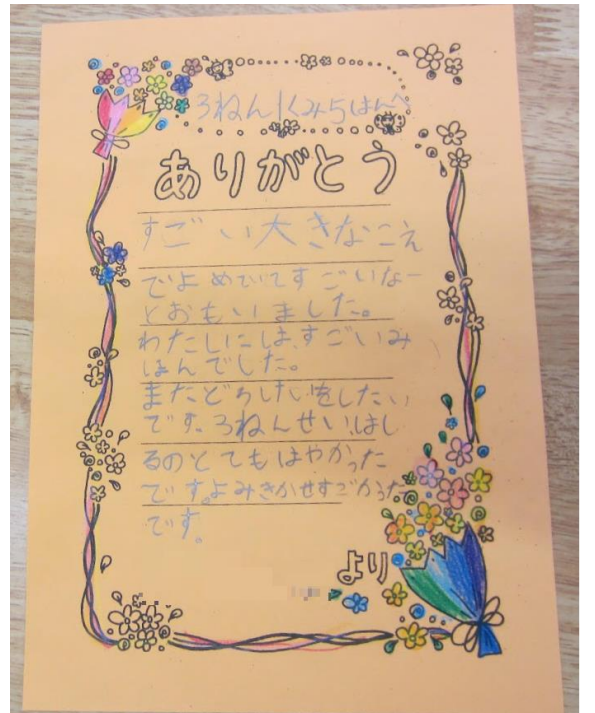 3ねん1くみ5はんへ
ありがとう
すごい大きなこえ
でよめていてすごいなー
とおもいました。
わたしにしは、すごいみ
ほんでした。
またどうしたいをしたい
です。3ねんせい、はし
るのとてもはやかった
です。よみきかせすごかった
です。
より